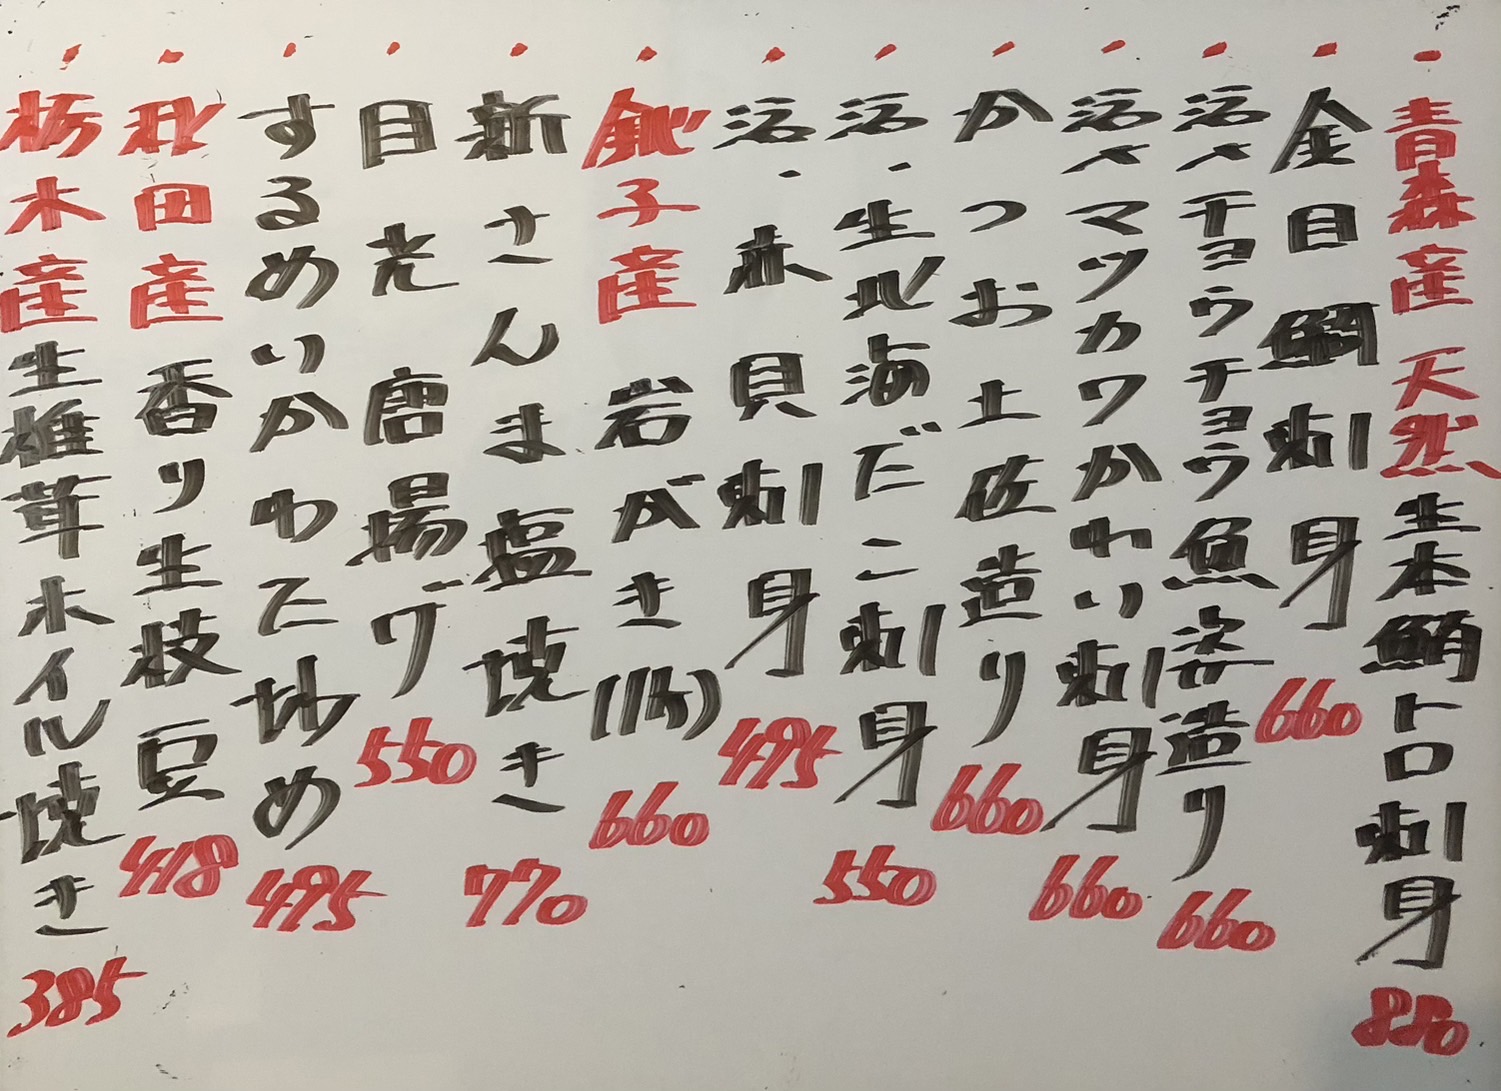 ・青森産天然生本鮪トロ刺身 880
・金目鯛刺身 660
・活〆チョウチョウ魚姿造り 660
・活〆マツカワかわい刺身 660
・かつお土佐造り 660
・活・生北海だこ刺身 550
・活・赤貝刺身 495
・銚子産岩がき(1ケ) 660
・新さんま塩焼き 770
・目光唐揚げ 550
・するめいかわた炒め 495
・秋田産香り生枝豆 418
・栃木産生椎茸ホイル焼き 385